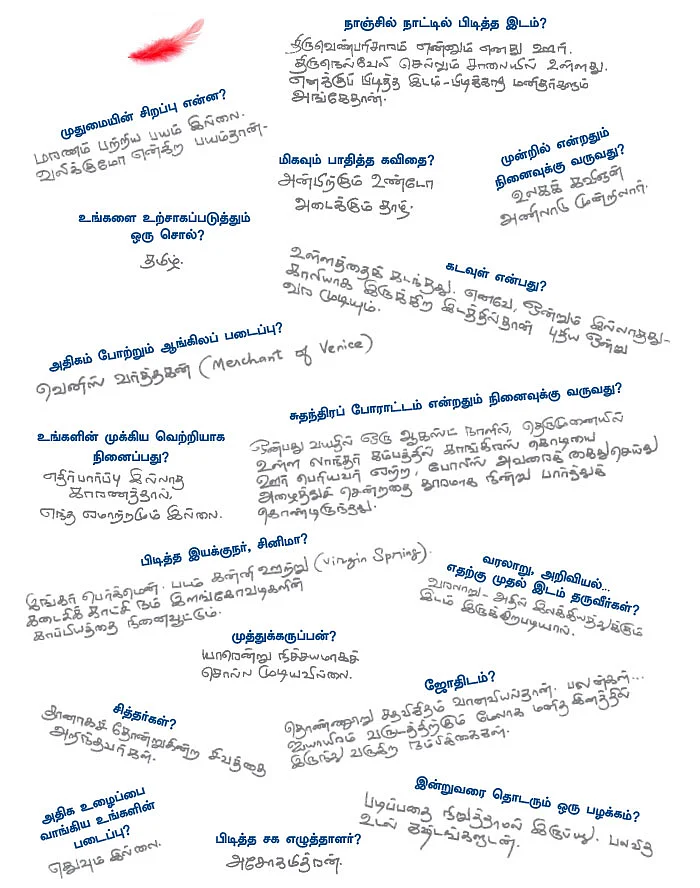 நாஞ்சில் நாட்டில் பிடித்த இடம்?
திருவெண்பரிசாரம் என்னும் எனது ஊர்.
திருநெல்வேலி செல்லும் சாலையில் உள்ளது.
எனக்குப் பிடித்த இடம் - பிடிக்காத மனிதர்களும்
அங்கேதான்.
முதுமையின் சிறப்பு என்ன?
மரணம் பற்றிய பயம் இல்லை.
வலிக்குமோ என்கிற பயம்தான் -
மிகவும் பாதித்த கவிதை?
அன்பிற்கும் உண்டோ
அடைக்கும் தாழ்.
முன்றில் என்றதும்
நினைவுக்கு வருவது?
உலகக் கவிஞன்
அணிலாடு முன்றிலார்.
உங்களை உற்சாகப்படுத்தும்
ஒரு சொல்?
தமிழ்.
கடவுள் என்பது?
உள்ளத்தைக் கடந்தது. எனவே, ஒன்றும் இல்லாதது -
காலியாக இருக்கிற இடத்தில்தான் புதிய ஒன்று
வர முடியும்.
அதிகம் போற்றும் ஆங்கிலப் படைப்பு?
வெனிஸ் வர்த்தகன் (Merchant of Venice)
சுதந்திரப் போராட்டம் என்றதும் நினைவுக்கு வருவது?
ஒன்பது வயதில் ஒரு ஆகஸ்ட் நாளில், தெருமுனையில்
உள்ள லாந்தர் கம்பத்தில் காங்கிரஸ் கொடியை
ஊர் பெரியவர் ஏற்ற, போலீஸ் அவரைக் கைதுசெய்து
அழைத்துச் சென்றதை தூரமாக நின்று பார்த்துக்
கொண்டிருந்தது.
உங்களின் முக்கிய வெற்றியாக
நினைப்பது?
எதிர்பார்ப்பு இல்லாத
காரணத்தால்,
எந்த ஏமாற்றமும் இல்லை.
பிடித்த இயக்குநர், சினிமா?
இங்கர் பெர்க்மென். படம் கன்னி ஊற்று (Virgin Spring).
கடைசிக் காட்சி நம் இளங்கோவடிகளின்
காப்பியத்தை நினைவூட்டும்.
வரலாறு, அறிவியல்...
எதற்கு முதல் இடம் தருவீர்கள்?
வரலாறு - அதில் இலக்கியத்துக்கும்
இடம் இருக்கிறபடியால்.
முத்துக்கருப்பன்?
யாரென்று நிச்சயமாகச்
சொல்ல முடியவில்லை.
ஜோதிடம்?
தொண்ணூறு சதவிகிதம் வானவியல்தான். பலன்கள்...
ஐயாயிரம் வருடத்திற்கும் மேலாக மனித இனத்தில்
இருந்து வருகிற நம்பிக்கைகள்.
சித்தர்கள்?
தானாகத் தோன்றுகின்ற சிவத்தை
அறிந்தவர்கள்.
அதிக உழைப்பை
வாங்கிய உங்களின்
படைப்பு?
எதுவும் இல்லை.
பிடித்த சக எழுத்தாளர்?
அசோகமித்ரன்.
இன்றுவரை தொடரும் ஒரு பழக்கம்?
படிப்பதை நிறுத்தாமல் இருப்பது. பலவித
உடல் கஷ்டங்களுடன்.